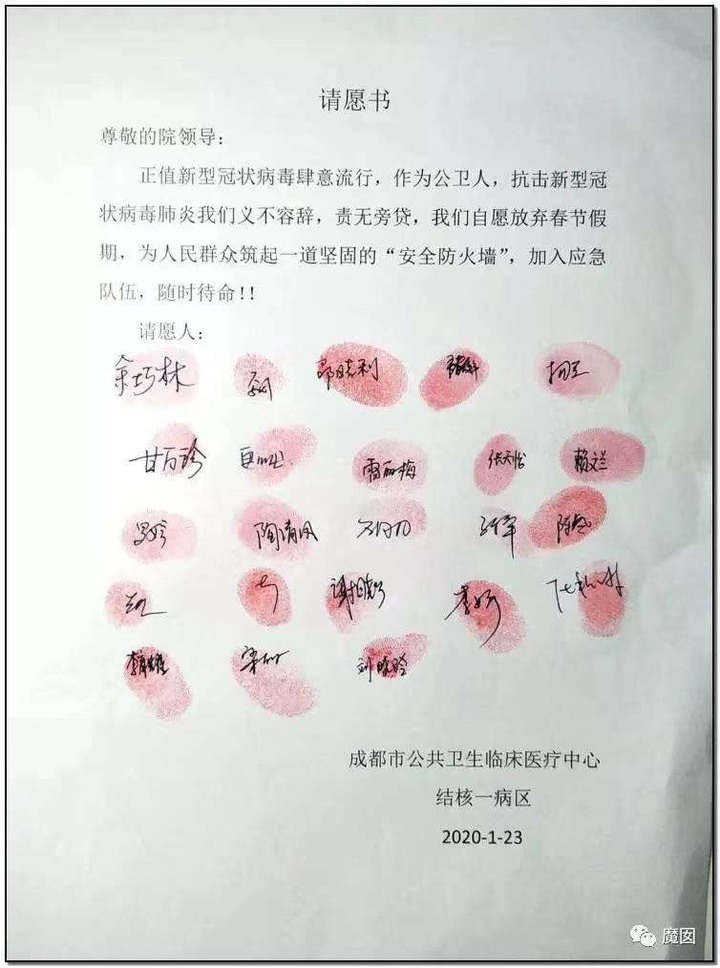 请愿书
尊敬的院领导：
正值新型冠状病毒肆意流行，作为公卫人，抗击新型冠
状病毒肺炎我们义不容辞，责无旁贷，我们自愿放弃春节假
期，为人民群众筑起一道坚固的“安全防火墙”，加入应急
队伍，随时待命！！
请愿人：
余巧林
甘万珍 雷丽梅 赖文兰
陶清风
谢晓
李
刘晓玲
成都市公共卫生临床医疗中心
结核一病区
2020-1-23
魔囡